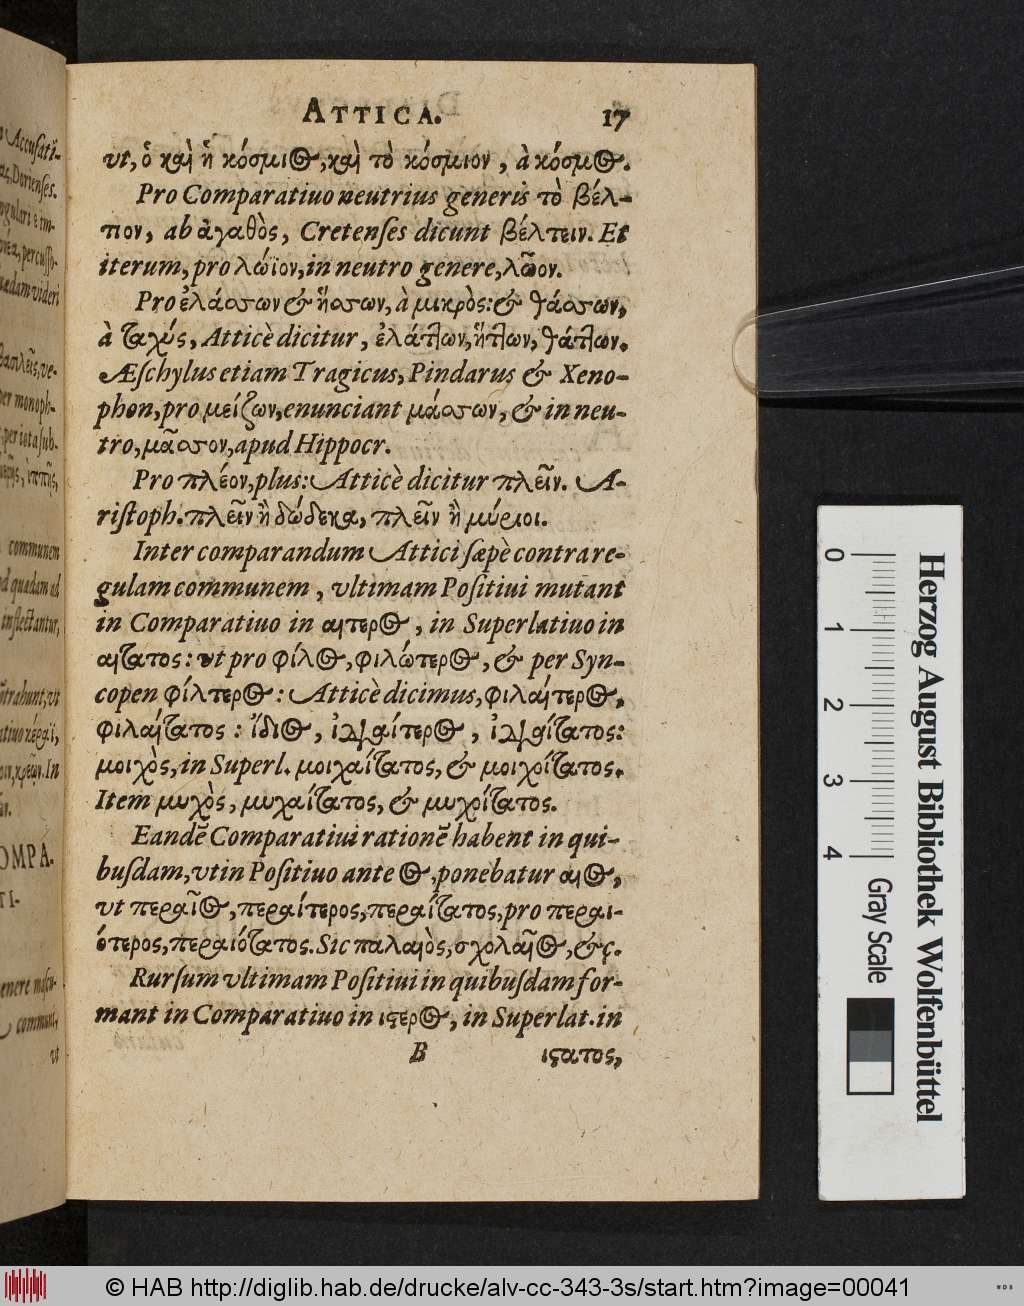 ATTICA. 17
vt, ὁ καὶ ἡ κόσμιος, καὶ τὸ κόσμιον, à κόσμος.
Pro Comparatiuo neutrius generis τὸ βέλ-
τιον, ab ἀγαθὸς, Cretenſes dicunt βέλτειν. Et
iterum, pro λώϊον, in neutro genere, λῶον.
Pro ἐλάσσων & ἥσσων, à μικρὸς: & θάσσων,
à ταχύς, Atticè dicitur, ἐλάττων, ἥττων, θάττων.
Æſchylus etiam Tragicus, Pindarus & Xeno-
phon, pro μείζων, enunciant μάσσων, & in neu-
tro, μᾶσσον, apud Hippocr.
Pro πλέον, plus: Atticè dicitur πλεῖν. A-
riſtoph. πλεῖν ἢ δώδεκα, πλεῖν ἢ μύριοι.
Inter comparandum Attici ſæpè contra re-
gulam communem, vltimam Poſitiui mutant
in Comparatiuo in αιτερος, in Superlatiuo in
αιτατος: vt pro φίλος, φιλώτερος, & per Syn-
copen φίλτερος: Atticè dicimus, φιλαίτερος,
φιλαίτατος: ἴδιος, ἰδιαίτερος, ἰδιαίτατος:
μοιχὸς, in Superl. μοιχαίτατος, & μοιχοίτατος.
Item μυχὸς, μυχαίτατος, & μυχοίτατος.
Eandē Comparatiui rationē habent in qui-
buſdam, vt in Poſitiuo ante ος, ponebatur αιος,
vt περαῖος, περαίτερος, περαίτατος, pro περαι-
ότερος, περαιότατος. Sic παλαιὸς, σχολαῖος, &c.
Rurſum vltimam Poſitiui in quibuſdam for-
mant in Comparatiuo in ιστερος, in Superlat. in
B ιστατος,
Accuſati-
Dorienſes.
communem
quadam ad
inflectantur,
OMPA.
TI-
communi,
vt
0 1 2 3 4
Herzog August Bibliothek Wolfenbüttel
Gray Scale
© HAB http://diglib.hab.de/drucke/alv-cc-343-3s/start.htm?image=00041